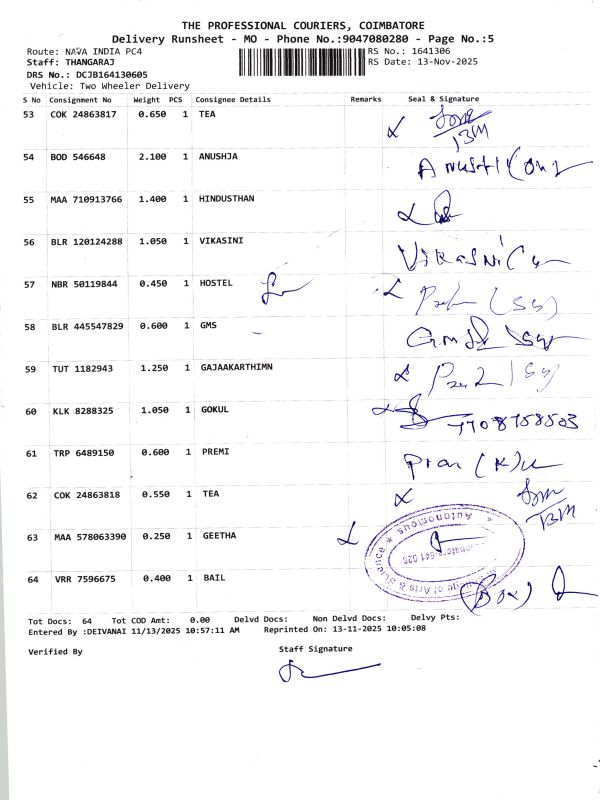 THE PROFESSIONAL COURIERS, COIMBATORE
Delivery Runsheet - MO - Phone No.:9047080280 - Page No.:5
Route: NAVA INDIA PC4 RS No.: 1641306
Staff: THANGARAJ RS Date: 13-Nov-2025
DRS No.: DCJB164130605
Vehicle: Two Wheeler Delivery
S No Consignment No Weight PCS Consignee Details Remarks Seal & Signature
53 COK 24863817 0.650 1 TEA
54 BOD 546648 2.100 1 ANUSHJA
55 MAA 710913766 1.400 1 HINDUSTHAN
56 BLR 120124288 1.050 1 VIKASINI
57 NBR 50119844 0.450 1 HOSTEL
58 BLR 445547829 0.600 1 GMS
59 TUT 1182943 1.250 1 GAJAAKARTHIMN
60 KLK 8288325 1.050 1 GOKUL
7708758503
61 TRP 6489150 0.600 1 PREMI
62 COK 24863818 0.550 1 TEA
63 MAA 578063390 0.250 1 GEETHA
of Arts & Science ★ Autonomous ★
64 VRR 7596675 0.400 1 BAIL
Tot Docs: 64 Tot COD Amt: 0.00 Delvd Docs: Non Delvd Docs: Delvy Pts:
Entered By :DEIVANAI 11/13/2025 10:57:11 AM Reprinted On: 13-11-2025 10:05:08
Verified By Staff Signature